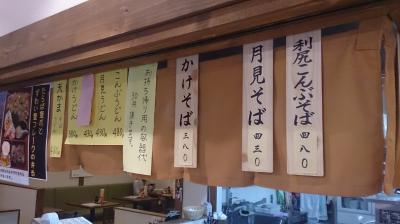 利尻こんぶそば 四八〇
月見そば 四三〇
かけそば 三八〇
お持ち帰り用の容器代
頂きます。
こんぶうどん 480
月見うどん 430
かけうどん
天かま